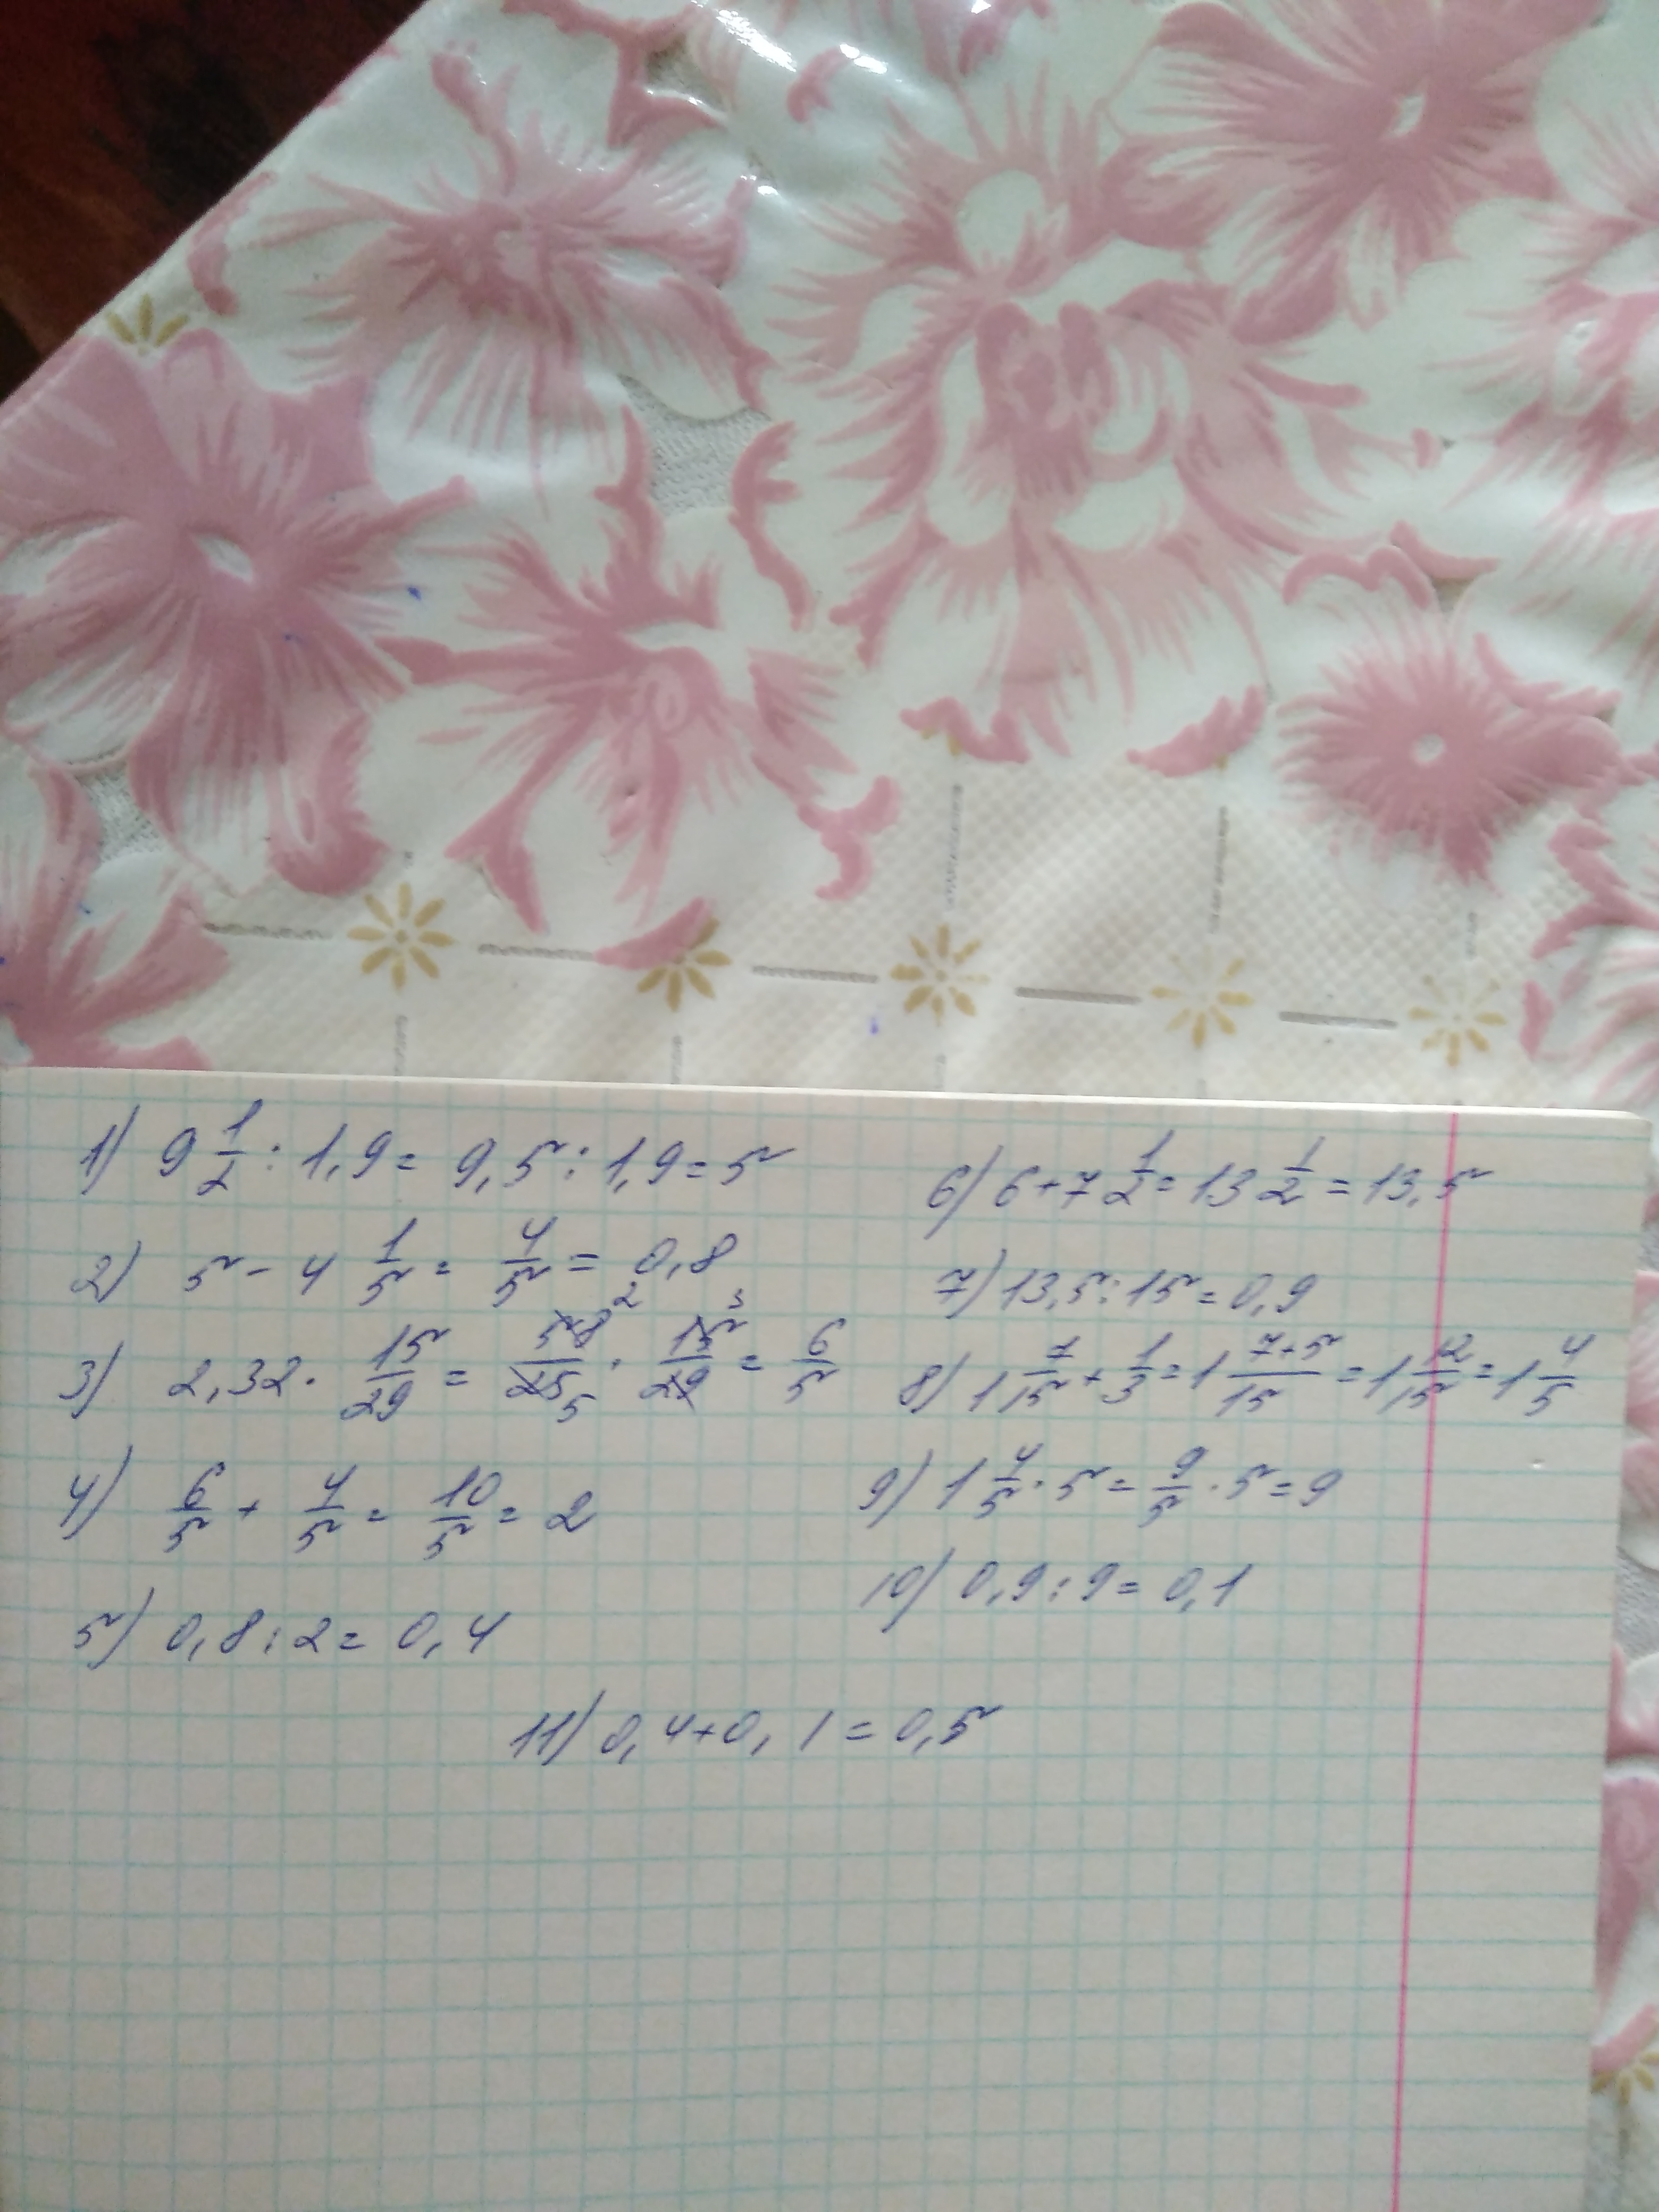 1) 9 1/2 : 1,9 = 9,5 : 1,9 = 5
2) 5 - 4 1/5 = 4/5 = 0,8
3) 2,32 · 15/29 = 58 2/25 5 · 15 3/29 = 6/5
4) 6/5 + 4/5 = 10/5 = 2
5) 0,8 : 2 = 0,4
6) 6 + 7 1/2 = 13 1/2 = 13,5
7) 13,5 : 15 = 0,9
8) 1 7/15 + 1/3 = 1 7+5/15 = 1 12/15 = 1 4/5
9) 1 4/5 · 5 = 9/5 · 5 = 9
10) 0,9 : 9 = 0,1
11) 0,4 + 0,1 = 0,5